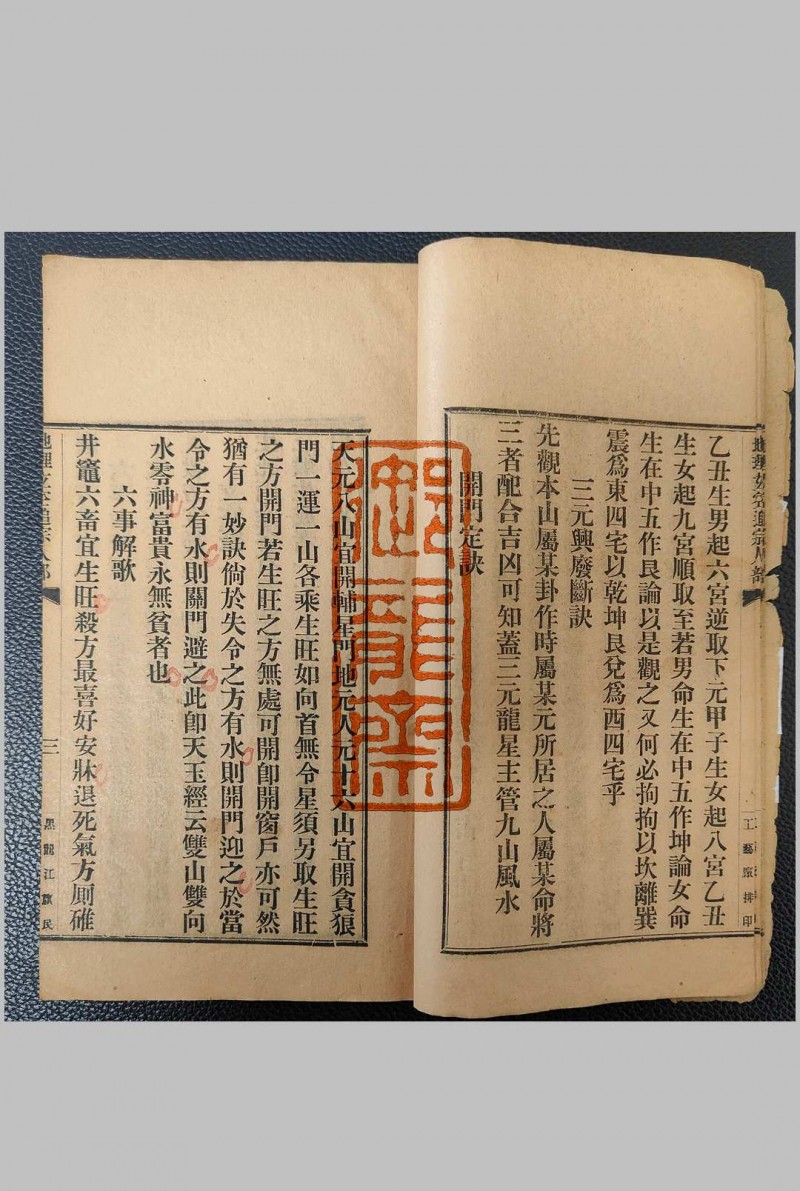 乙丑生男起六宮逆取下元甲子生女起八宮乙丑
生女起九宮順取至若男命生在中五作坤論女命
生在中五作艮論以是觀之又何必拘拘以坎離巽
震爲東四宅以乾坤艮兌爲西四宅乎
三元興廢斷訣
先觀本山屬某卦作時屬某元所居之人屬某命將
三者配合吉凶可知蓋三元龍星主管九山風水
開門定訣
天元八山宜開輔星門地元人元十六山宜開貪狼
門一運一山各乘生旺如向首無令星須另取生旺
之方開門若生旺之方無處可開卽開窗戶亦可然
猶有一妙訣倘於失令之方有水則開門迎之於當
令之方有水則關門避之此卽天玉經云雙山雙向
水零神富貴永無貧者也
六事解歌
井竈六畜宜生旺殺方最喜好安牀退死氣方厠碓
三
黑龍江旗民
工藝廠排印